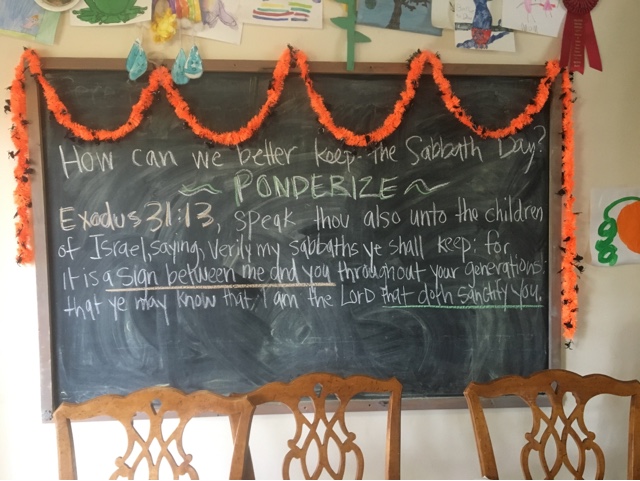 How can we better keep the Sabbath Day?
~ PONDERIZE ~
Exodus 31:13, speak thou also unto the children
of Israel, saying, Verily my sabbaths ye shall keep: for
it is a sign between me and you throughout your generations;
that ye may know that I am the Lord that doth sanctify you.